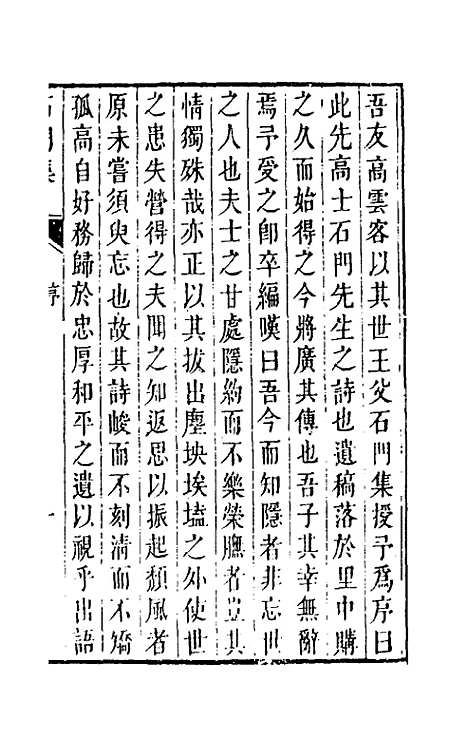 吾友高雲客以其世王父石門集授予爲序曰
此先高士石門先生之詩也遺稿落於里中購
之久而始得之今將廣其傳也吾子其幸無辭
焉予受之卽卒編嘆曰吾今而知隱者非忘世
之人也夫士之甘處隱約而不樂榮膴者豈其
情獨殊哉亦正以其拔出塵坱埃壒之外使世
之患失營得之夫聞之知返思以振起頹風者
原未嘗須臾忘也故其詩峻而不刻淸而不矯
孤高自好務歸於忠厚和平之遺以視乎出語
石門集 序 一